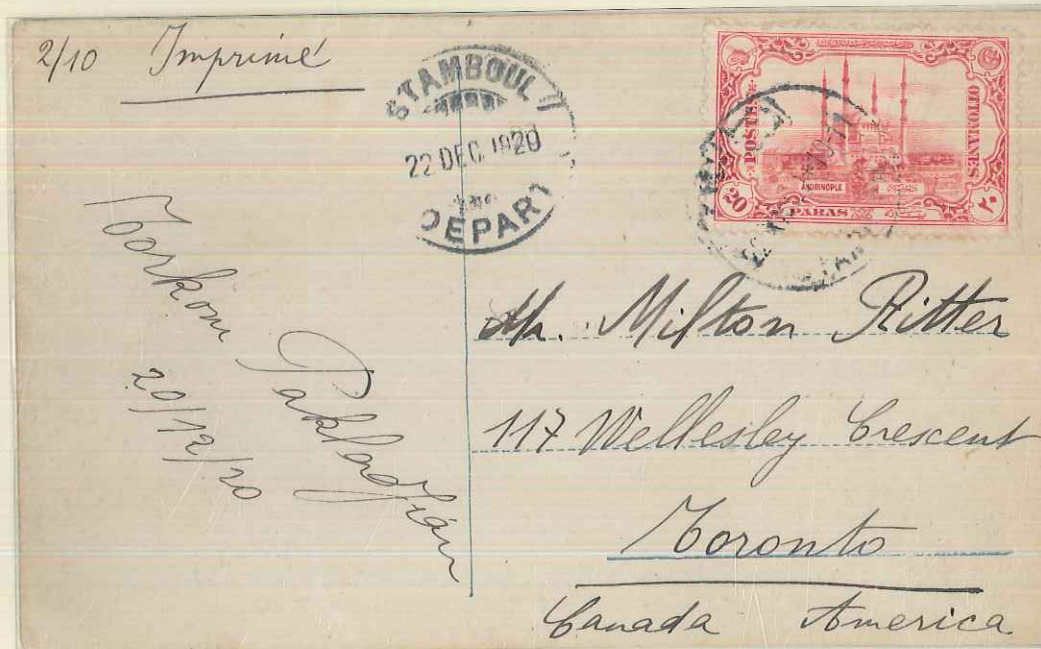 2/10 Imprimé
STAMBOUL
22 DEC 1920
DÉPART
POSTES OTTOMANES
ANDRINOPLE
20 PARAS ٢٠
Torkom Pakladjian
20/12/20
Mr. Milton Ritter
117 Wellesley Crescent
Toronto
Canada America